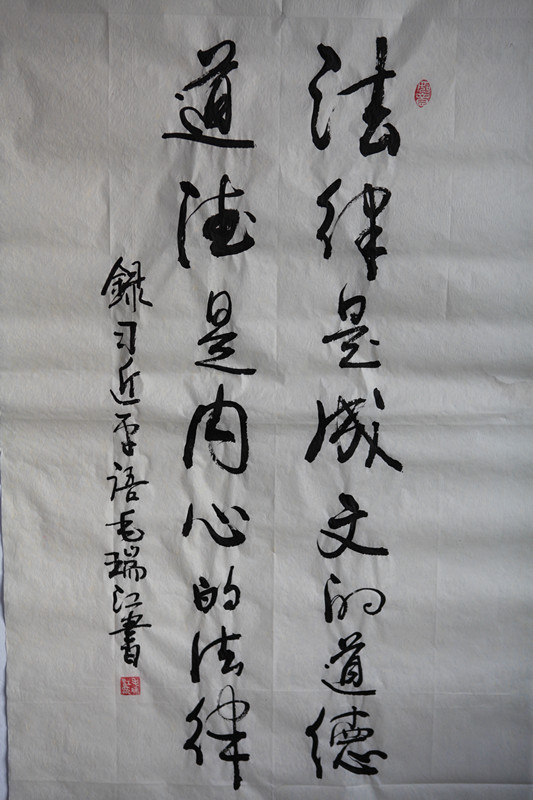 法律是成文的道德
道德是内心的法律
録习近平语毛瑞江書